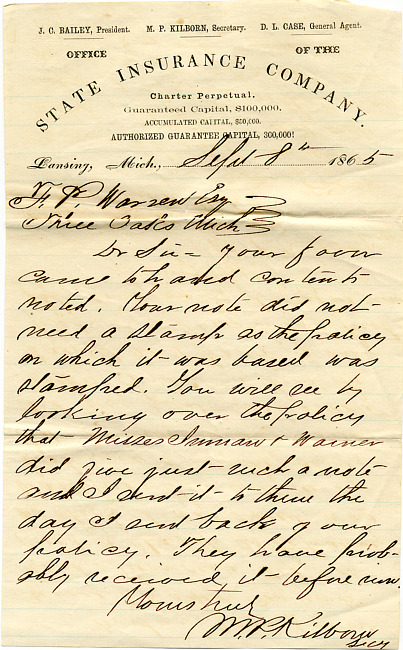 J. C. BAILEY, President. M. P. KILBORN, Secretary. D. L. CASE, General Agent.
OFFICE OF THE
STATE INSURANCE COMPANY.
Charter Perpetual.
Guaranteed Capital, $100,000.
ACCUMULATED CAPITAL, $50,000.
AUTHORIZED GUARANTEE CAPITAL, 300,000!
Lansing, Mich., Sept 8th 1865
F. P. Warren Esq
Three Oaks Mich
Dr Sir = Your favor
came to hand contents
noted. Your note did not
need a stamp as the policy
on which it was based was
stamped. You will see by
looking over the policy
that Misses Inman & Warner
did give just such a note
and I sent it to them the
day I sent back your
policy. They have prob-
ably received it before now.
Yours truly
M. P. Kilborn
Secy